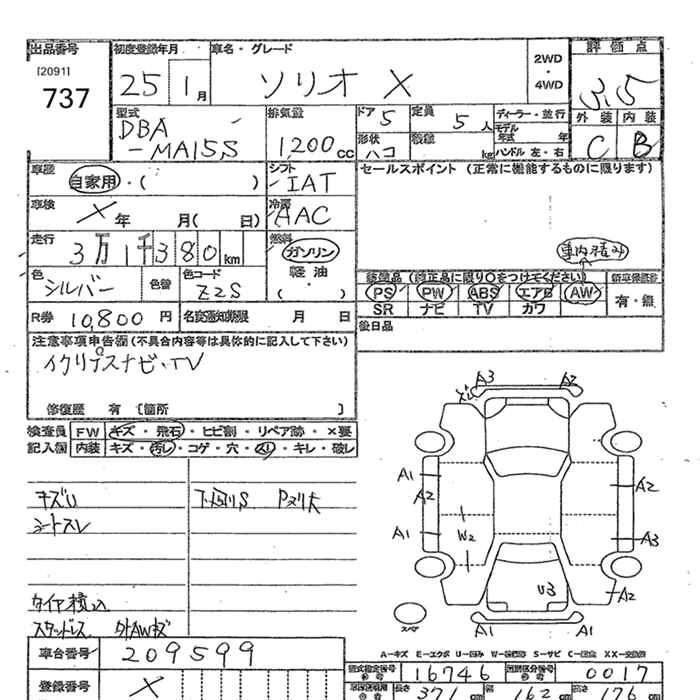 出品番号 初度登録年月 車名・グレード 評価点
[2091]
737
25 1月 ソリオ X 2WD・4WD 3.5
外装 内装
C B
型式 排気量 ドア 5 定員 5人 ディーラー・並行
DBA
-MA15S 1,200cc
形状 ハコ 積載 kg モデル年式 年
ハンドル 左・右
車歴 自家用・( ) シフト IAT
セールスポイント (正常に機能するものに限ります)
車検 X年 月( 日) 冷房 AAC
走行 3万1千380km 燃料 ガソリン
軽油
( ・ )
車内積み
色 シルバー 色替 色コード Z2S
装備品 (純正品に限り○をつけてください) 新車保証書
PS PW ABS エアB AW 有・無
SR ナビ TV カワ
R券 10,800円 名変通知期限 月 日
後日品
注意事項申告欄(不具合内容等は具体的に記入して下さい)
イクリプスナビ・TV
修復歴 有 [箇所 ]
検査員 FW キズ・飛石・ヒビ割・リペア跡・×要
記入欄 内装 キズ・汚レ・コゲ・穴・スリ・キレ・破レ
A3 A2
A1 A2 A2
A1 W2 A3
U3 A2
A1 A1
キズU
シートスレ
タイヤ積込
スタッドレス 外AWキズ
スペア
A-キズ E-エクボ U-凹み W-補修跡 S-サビ C-腐食 XX-交換済
車台番号 209599
型式指定番号 16746 類別区分番号 0017
登録番号 X
長さ 371cm 幅 162cm 高さ 176cm